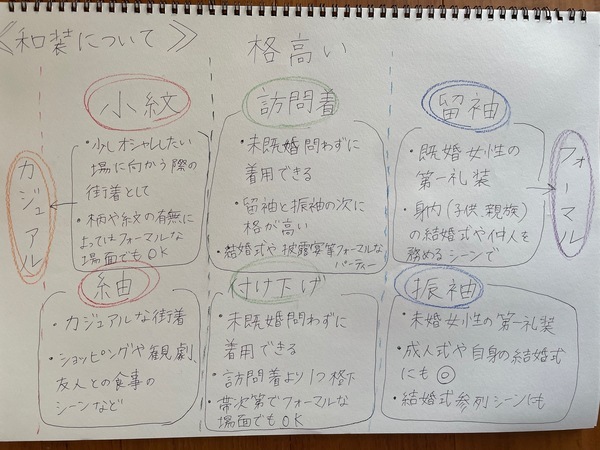 ≪和装について≫
格高い
カジュアル
小紋
・少しオシャレしたい
場に向かう際の
街着として
・柄や紋の有無に
よってはフォーマルな
場面でもOK
訪問着
・未既婚問わずに
着用できる
・留袖と振袖の次に
格が高い
・結婚式や披露宴等フォーマルな
パーティー
留袖
・既婚女性の
第一礼装
・身内(子供、親族)
の結婚式や仲人を
務めるシーンで
フォーマル
紬
・カジュアルな街着
・ショッピングや観劇、
友人との食事の
シーンなど
付け下げ
・未既婚問わずに
着用できる
・訪問着より1つ格下
・帯次第でフォーマルな
場面でもOK
振袖
・未婚女性の第一礼装
・成人式や自身の結婚式
にも◎
・結婚式参列シーンにも